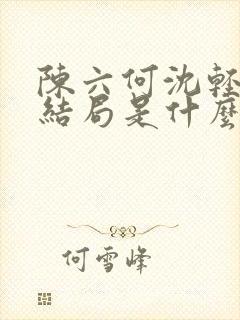 陳六何沈輕
結局是什麼
何雪峰